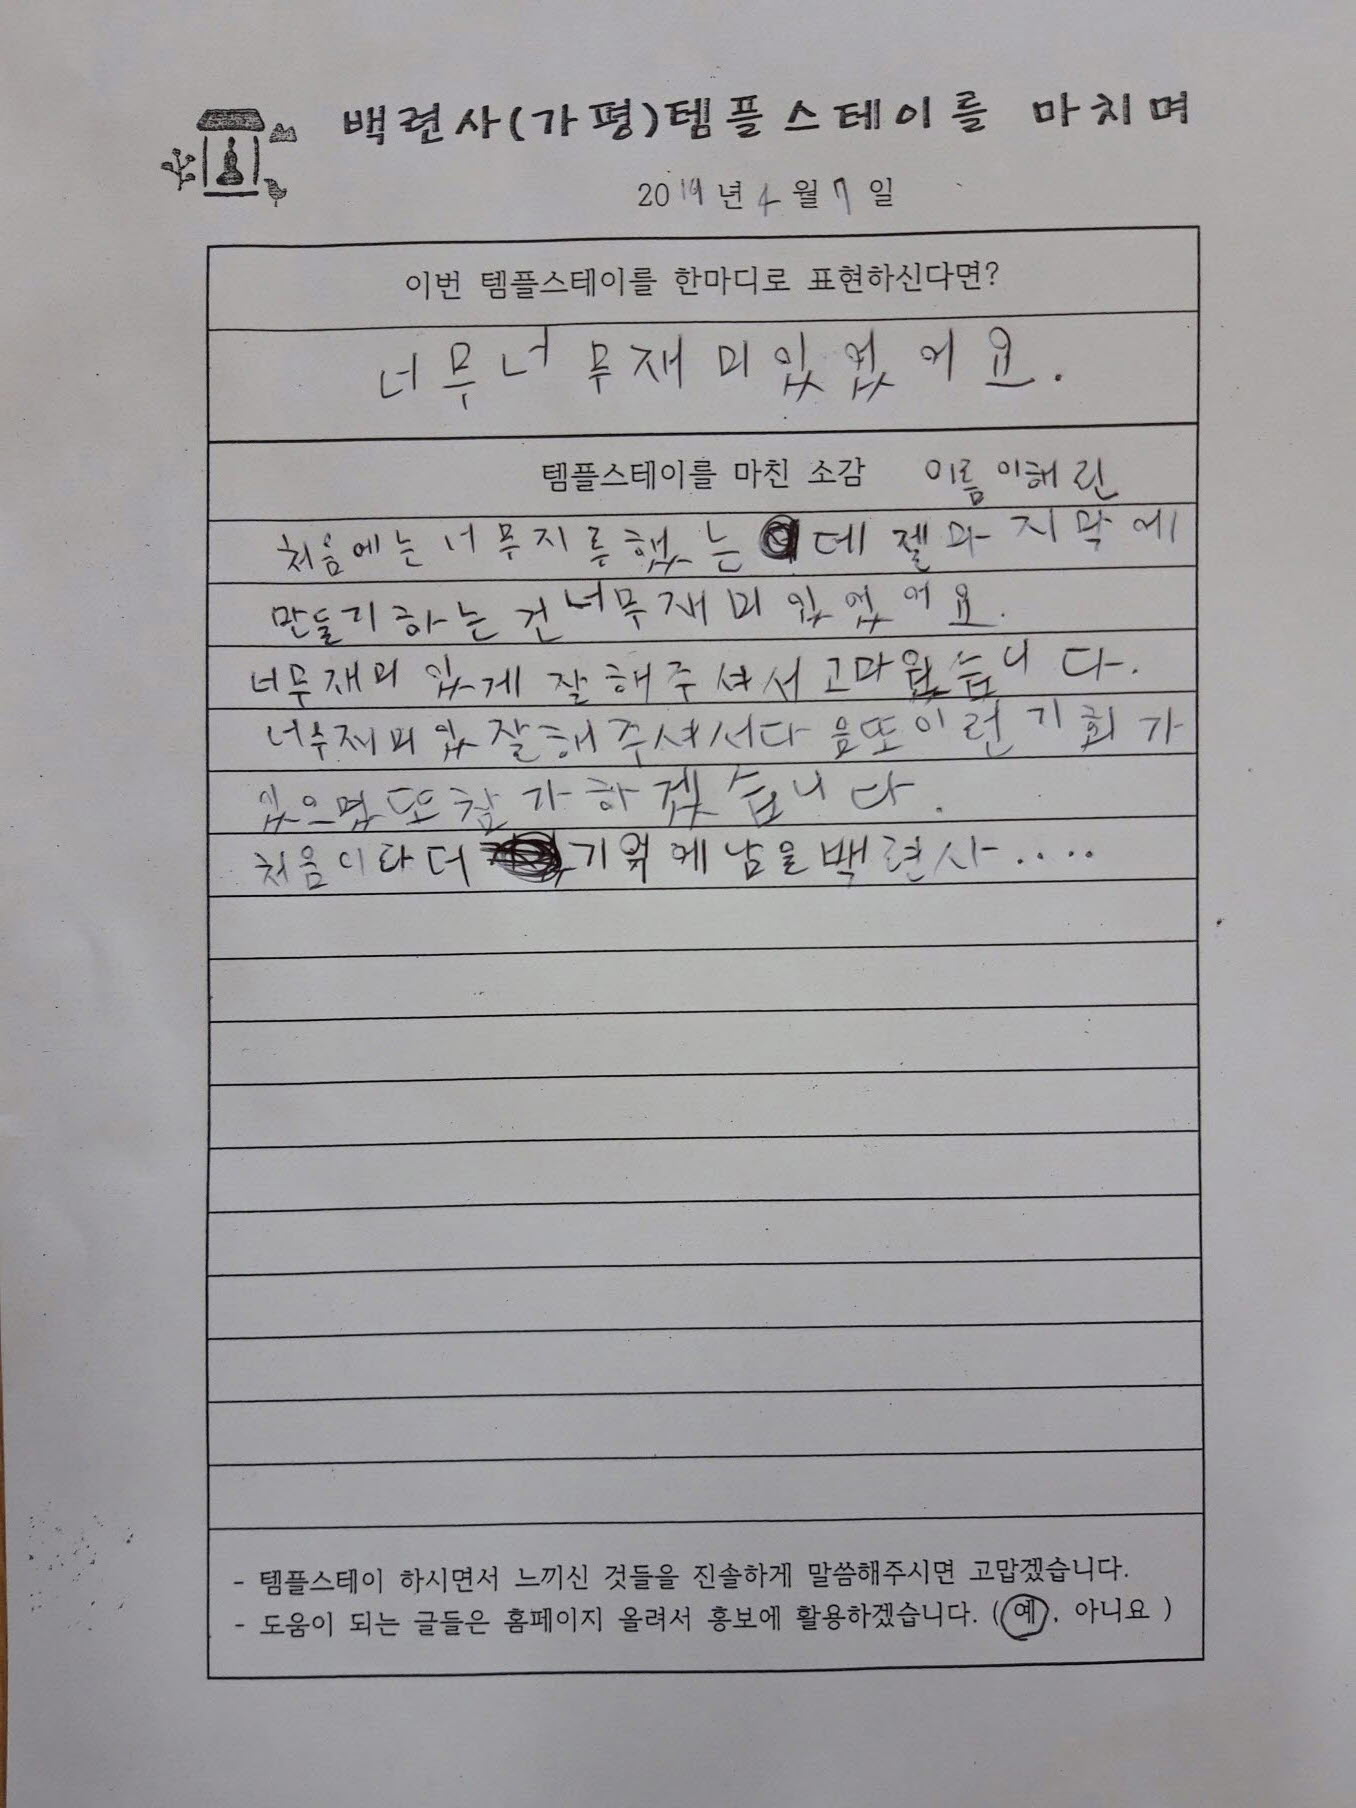 백련사(가평)템플스테이를 마치며
2019년 4월 7일
이번 템플스테이를 한마디로 표현하신다면?
너무너무재미있었어요.
템플스테이를 마친 소감 이름이해린
처음에는너무지루했는데젤마지막에
만들기하는건너무재미있었어요.
너무재미있게잘해주셔서고마웠습니다.
너무재미있잘해주셔서다음또이런기회가
있으몄또참가하겠습니다.
처음이다더기억에남을백련사....
- 템플스테이 하시면서 느끼신 것들을 진솔하게 말씀해주시면 고맙겠습니다.
- 도움이 되는 글들은 홈페이지 올려서 홍보에 활용하겠습니다. (예, 아니요 )